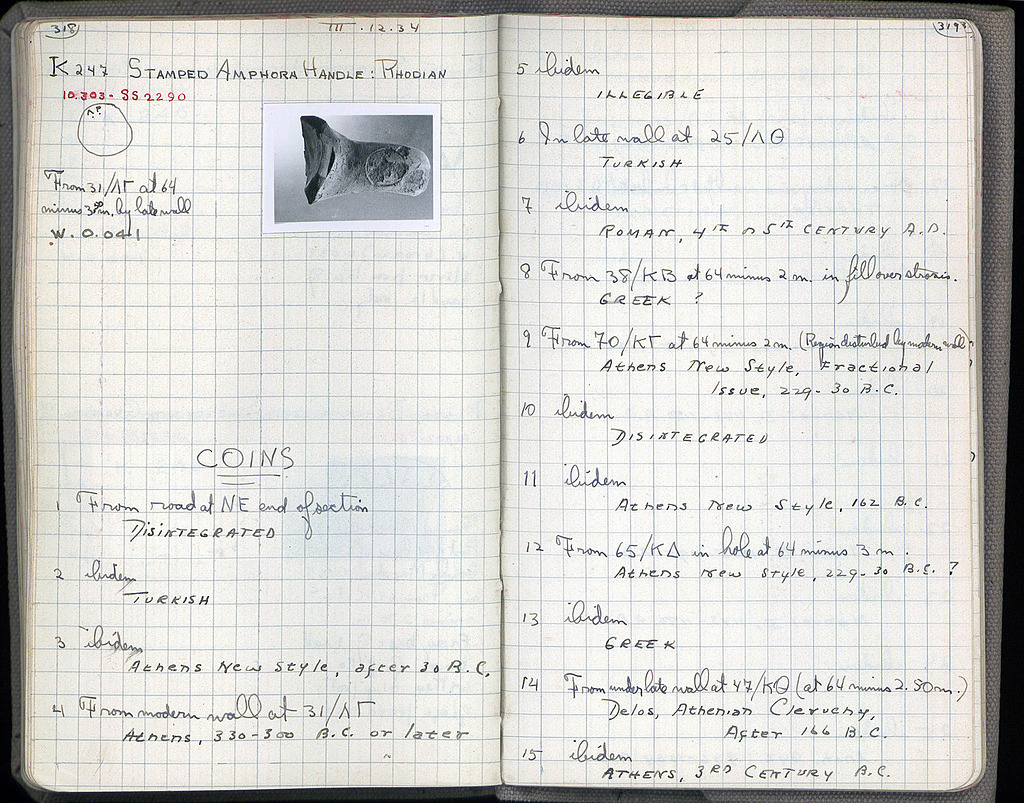 318
III.12.34
K 247 STAMPED AMPHORA HANDLE: RHODIAN
10.303 - SS 2290
From 31/ΛΓ at 64
minus 3.00 m. by late wall
W. 0.041
COINS
1 From road at NE end of section
DISINTEGRATED
2 ibidem
TURKISH
3 ibidem
Athens New Style, after 30 B.C.
4 From modern wall at 31/ΛΓ
Athens, 330-300 B.C. or later
319
5 ibidem
ILLEGIBLE
6 In late wall at 25/ΛΘ
TURKISH
7 ibidem
ROMAN, 4TH or 5TH CENTURY A.D.
8 From 38/ΚΒ at 64 minus 2 m. in fill over strosis.
GREEK ?
9 From 70/ΚΓ at 64 minus 2 m. (Region disturbed by modern wall)
Athens New Style, Fractional
Issue, 229-30 B.C.
10 ibidem
DISINTEGRATED
11 ibidem
Athens New Style, 162 B.C.
12 From 65/ΚΔ in hole at 64 minus 3 m.
Athens New Style, 229-30 B.C. ?
13 ibidem
GREEK
14 From under late wall at 47/ΚΘ (at 64 minus 2.50 m.)
Delos, Athenian Cleruchy,
After 166 B.C.
15 ibidem
ATHENS, 3RD CENTURY B.C.